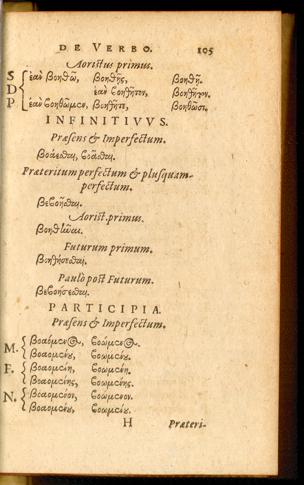 DE VERBO. 105
Aoristus primus.
S ἐὰν βοηθῶ, βοηθῇς, βοηθῇ.
D ἐὰν βοηθῆτον, βοηθῆτον.
P ἐὰν βοηθῶμεν, βοηθῆτε, βοηθῶσι.
INFINITIVVS.
Præsens & Imperfectum.
βοάεσθαι, βοᾶσθαι.
Præteritum perfectum & plusquam-
perfectum.
βεβοῆσθαι.
Aorist. primus.
βοηθῆναι.
Futurum primum.
βοηθήσεσθαι.
Paulò post Futurum.
βεβοήσεσθαι.
PARTICIPIA.
Præsens & Imperfectum.
M. βοαόμενος, βοώμενος.
βοαομένου, βοωμένου.
F. βοαομένη, βοωμένη.
βοαομένης, βοωμένης.
N. βοαόμενον, βοώμενον.
βοαομένου, βοωμένου.
H Præteri-